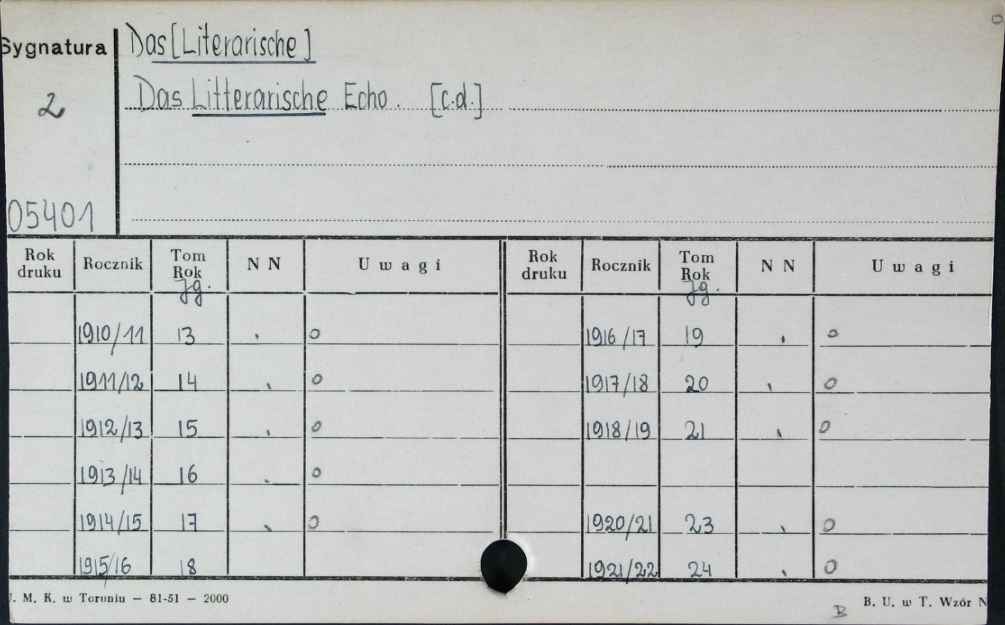 Sygnatura
Das [Literarische]
2
Das Litterarische Echo. [c.d.]
05401
Rok druku Rocznik Tom Rok Jg. NN Uwagi Rok druku Rocznik Tom Rok Jg. NN Uwagi
1910/11 13 , o 1916/17 19 , o
1911/12 14 , o 1917/18 20 , o
1912/13 15 , o 1918/19 21 , o
1913/14 16 . o
1914/15 17 , o 1920/21 23 , o
1915/16 18 1921/22 24 , o
. M. K. w Toruniu — 81-51 — 2000
B
B. U. w T. Wzór N